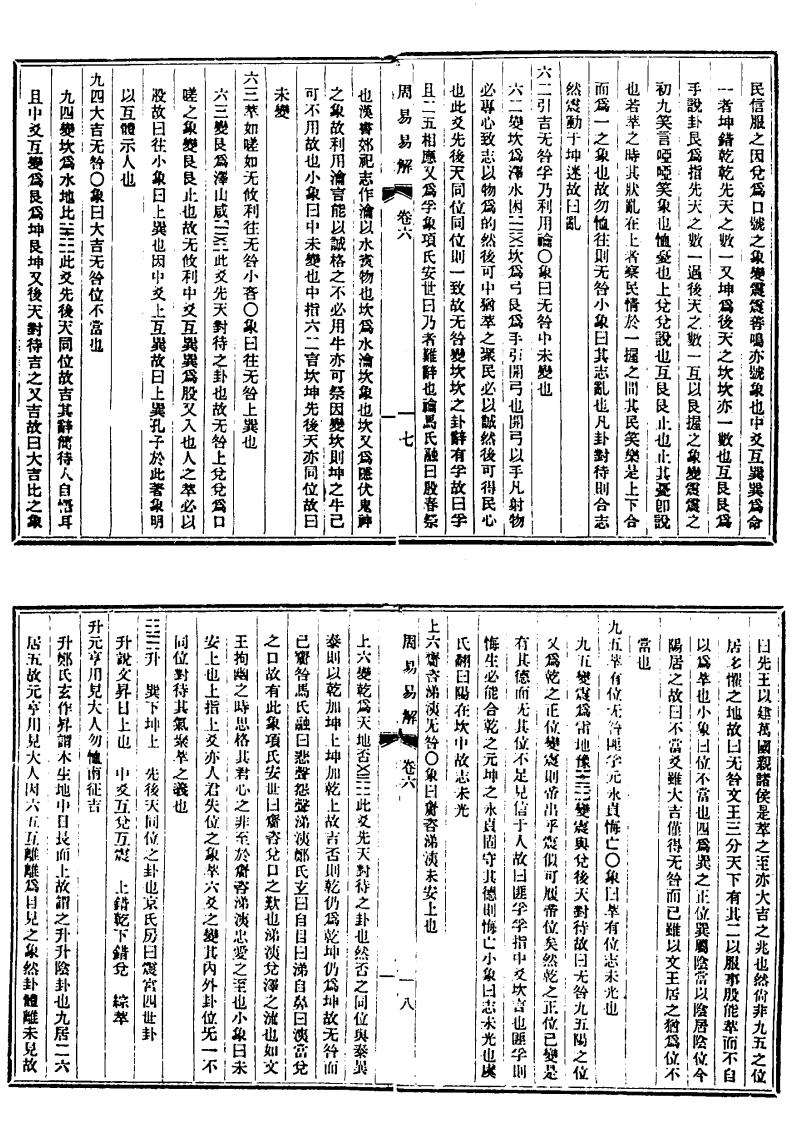 民信服之因兌爲口號之象變震震善鳴亦號象也中爻互巽巽爲命
一者坤錯乾乾先天之數一又坤爲後天之坎坎亦一數也互艮艮爲
手說卦艮爲指先天之數一過後天之數一互以艮握之象變震震之
初九笑言啞啞笑象也恤憂也上兌兌說也互艮艮止也止其憂卽說
也若萃之時其狀亂在上者察民情於一握之間其民笑樂是上下合
而爲一之象也故勿恤往則无咎小象曰其志亂也凡卦對待則合志
然震動于坤迷故曰亂
六二引吉无咎孚乃利用禴〇象曰引吉无咎中未變也
六二變坎爲澤水困坎爲弓艮爲手引開弓也開弓以手凡射物
必專心致志以物爲的然後可中猶萃之聚民必以誠然後可得民心
也此爻先後天同位同位則一致故无咎變坎坎之卦辭有孚故曰孚
且二五相應又爲孚象項氏安世曰乃者難辭也禴馬氏融曰殷春祭
周易易解
卷六
七
也漢書郊祀志作瀹以水賓物也坎爲水瀹坎象也坎又爲隱伏鬼神
之象故利用瀹言能以誠格之不必用牛亦可祭因變坎則坤之牛已
可不用故也小象曰中未變也中指六二言坎坤先後天亦同位故曰
未變
六三萃如嗟如无攸利往无咎小吝〇象曰往无咎上巽也
六三變艮爲澤山咸此爻先天對待之卦也故无咎上兌兌爲口
嗟之象變艮艮止也故无攸利中爻互巽巽爲股又入也人之萃必以
股故曰往小象曰上巽也因中爻上互巽故曰上巽孔子於此著象明
以互體示人也
九四大吉无咎〇象曰大吉无咎位不當也
九四變坎爲水地比此爻先後天同位故吉其辭簡待人自悟耳
且中爻互變爲艮爲坤艮坤又後天對待吉之又吉故曰大吉比之象
曰先王以建萬國親諸侯是萃之至亦大吉之兆也然尙非九五之位
居多懼之地故曰无咎文王三分天下有其二以服事殷能萃而不自
以爲萃也小象曰位不當也四爲巽之正位巽屬陰當以陰居陰位今
陽居之故曰不當爻雖大吉僅得无咎而已雖以文王居之猶爲位不
當也
九五萃有位无咎匪孚元永貞悔亡〇象曰萃有位志未光也
九五變震爲雷地豫變震與兌後天對待故曰无咎九五陽之位
又爲乾之正位變震則帝出乎震似可履帝位矣然乾之正位已變是
有其德而无其位不足見信于人故曰匪孚孚指中爻坎言也匪孚則
悔生必能合乾之元坤之永貞固守其德則悔亡小象曰志未光也虞
氏翻曰陽在坎中故志未光
上六齎咨涕洟无咎〇象曰齎咨涕洟未安上也
周易易解
卷六
八
上六變乾爲天地否此爻先天對待之卦也然否之同位與泰異
泰則以乾加坤上坤加乾上故吉否則乾仍爲乾坤仍爲坤故无咎而
已齎咨馬氏融曰悲聲怨聲涕洟鄭氏玄曰自目曰涕自鼻曰洟當兌
之口故有此象項氏安世曰齎咨兌口之歎也涕洟兌澤之流也如文
王拘幽之時思格其君心之非至於齎咨涕洟忠愛之至也小象曰未
安上也上指上爻亦人君失位之象萃六爻之變其內外卦位无一不
同位對待其氣聚萃之義也
升 巽下坤上 先後天同位之卦也京氏房曰震宮四世卦
升說文昇日上也 中爻互兌互震 上錯乾下錯兌 綜萃
升元亨用見大人勿恤南征吉
升鄭氏玄作昇謂木生地中日長而上故謂之升升陰卦也九居二六
居五故元亨用見大人因六五互離離爲目見之象然卦體離未見故